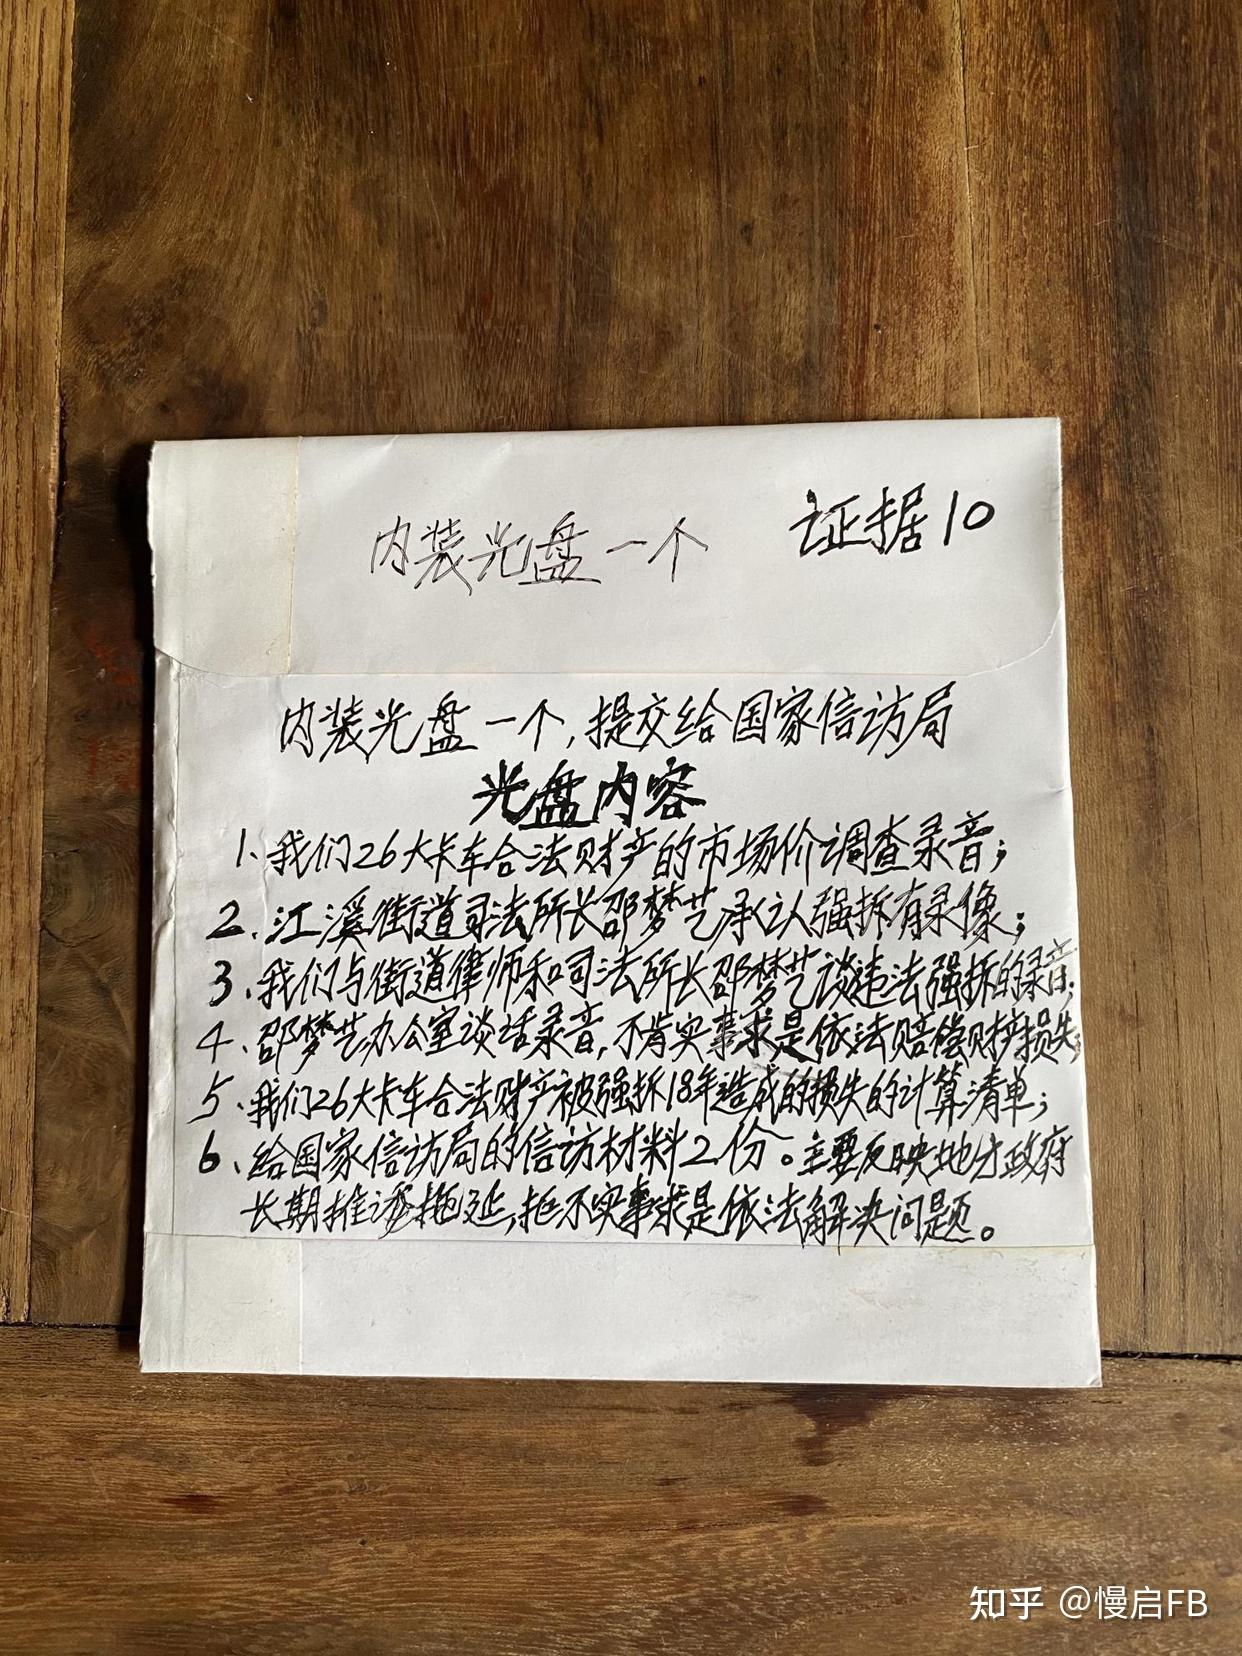 内装光盘一个
证据10
内装光盘一个,提交给国家信访局
光盘内容
1、我们26大卡车合法财产的市场价调查录音;
2、江溪街道司法所长邵梦艺承认强拆有录像;
3、我们与街道律师和司法所长邵梦艺谈违法强拆的录音;
4、邵梦艺办公室谈话录音,不肯实事求是依法赔偿财产损失;
5、我们26大卡车合法财产被强拆18年造成的损失的计算清单;
6、给国家信访局的信访材料2份。主要反映地方政府
长期推诿拖延,拒不实事求是依法解决问题。
知乎 @慢启FB